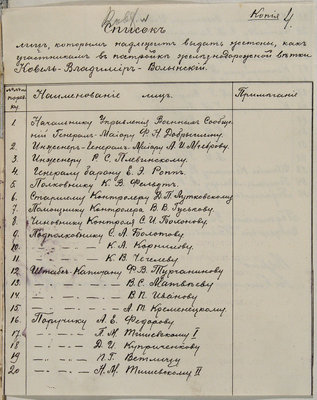 Копія 4.
Списокъ
лицъ, которымъ надлежитъ выдать жетоны, какъ
участникамъ въ постройкѣ желѣзнодорожной вѣтки
Ковель-Владиміръ-Волынскій.
Наименованіе лицъ. Примѣчаніе
1 Начальнику Управленія Военныхъ Сообще-
ній Генералъ-Маіору Ф. Н. Добрышину.
2. Инженеръ-Генералъ-Маіору А. И.
3. Инженеру Р. С. Плевинскому.
4. Генералу барону Е. Э. Роппъ.
5 Полковнику К. В.
6. Старшему Контролеру Лутковскому
7. Помощнику Контролера В. В. Гуськову.
8. Чиновнику Контроля С. И. Болонову.
9. Подполковнику С. А. Болотову.
10. — — — К. А. Корнилову.
11. — — — К. В. Чечелеву.
12. Штабсъ-Капитану Ф. В. Турчанинову
13. — — — В. С. Матвѣеву
14. — — — В. П. Иванову
15. — — — А. М. Кременецкому.
16 Поручику А. Е. Федорову
17. — — — Тишевскому I
18 — — — Д. И. Куприченкову
19 — — — П. Г.
20 — — — А. М. Тишевскому II